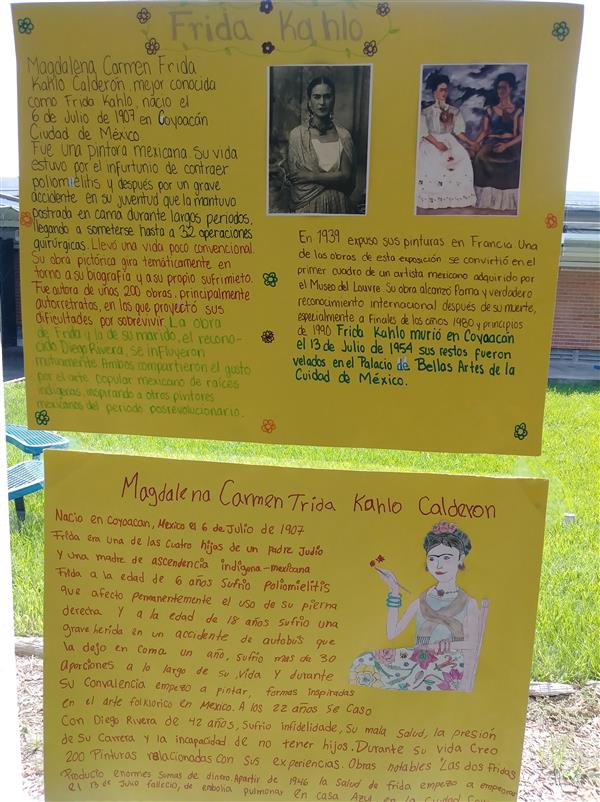 Frida Kahlo
Magdalena Carmen Frida
Kahlo Calderón, mejor conocida
como Frida Kahlo, nacio el
6 de Julio de 1907 en Coyoacán
Ciudad de México
Fue una pintora mexicana. Su vida
estuvo por el infurtunio de contraer
poliomielitis y después por un grave
accidente en su juventud que la mantuvo
postrada en cama durante largos periodos,
llegando a someterse hasta a 32 operaciones
quirúrgicas. Llevó una vida poco convencional.
Su obra pictórica gira temáticamente en
torno a su biografía y a su propio sufrimieto.
Fue autora de unas 200 obras, principalmente
autorretratos, en los que proyectó sus
dificultades por sobrevivir. La obra
de Frida y la de su marido, el recono-
cido Diego Rivera, se influyeron
mutuamente. Ambos compartieron el gusto
por el arte popular mexicano de raíces
indígenas, inspirando a otros pintores
mexicanos del periodo posrevolucionario.
En 1939 expuso sus pinturas en Francia. Una
de las obras de esta exposición se convirtió en el
primer cuadro de un artista mexicano adquirido por
el Museo del Louvre. Su obra alcanzó Fama y verdadero
reconocimiento internacional después de su muerte,
especialmente a Finales de los años 1980 y principios
de 1990. Frida Kahlo murió en Coyoacán
el 13 de Julio de 1954 sus restos fueron
velados en el Palacio de Bellas Artes de la
Cuidad de México.
Magdalena Carmen Trida Kahlo Calderon
Nacio en Coyoacan, Mexico el 6 de Julio de 1907
Frida era una de las cuatro hijas de un padre Judio
y una madre de ascendencia indigena-mexicana
Frida a la edad de 6 años Sufrio Poliomielitis
que afecto permanentemente el uso de su pierna
derecha y a la edad de 18 años sufrio una
grave herida en un accidente de autobus que
la dejo en coma un año, sufrio mas de 30
aporciones a lo largo de su vida y durante
su Convalencia empezo a pintar, formas inspiradas
en el arte folklorico en Mexico. A los 22 años se Caso
Con Diego Rivera de 42 años, Sufrio infidelidade, Su mala salud, la presión
de Su Carrera y la incapacidad de no tener hijos. Durante su vida Creo
200 Pinturas relacionadas con sus experiencias. Obras notables "Las dos Fridas
Producto enormes Sumas de dinero. Apartir de 1946 la Salud de frida empezo a empeorar
el 13 de Julio fallecio, de embolia pulmonar en Casa Azul en la Ciudad